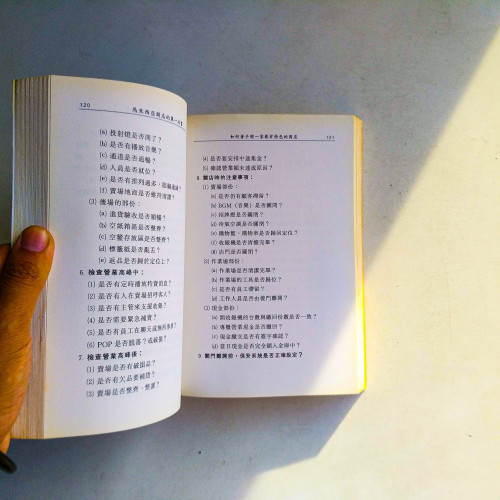 120
馬來西亞開店的第一本書
(a) 投射燈是否開了？
(b) 是否有播放音樂？
(c) 通道是否過暢？
(d) 人員是否就位？
(e) 是否有排列過多
(f) 賣場地面是否維持清潔？
(3) 後場的部份：
(a) 進貨驗收是否順暢？
(b) 空紙箱區是否整齊？
(c) 空籃存放區是否整齊？
(d) 標籤紙是否亂丟？
(e) 返品是否歸於定位上？
6. 檢查營業高峰中：
(1) 是否有定時播放特賣消息？
(2) 是否有人在賣場招呼客人？
(3) 是否有主管來支援收銀？
(4) 是否需要緊急補貨？
(5) 是否有員工在聊天或無所事事？
(6) POP 是否脫落？或破損？
7. 檢查營業高峰後：
(1) 賣場是否有破損品？
(2) 是否有欠品要補貨？
(3) 賣場是否整齊、整潔？
如何著手開一家最有特色的商店
121
(4) 是否要安排中途集金？
(5) 確認營業額未達成原因？
8. 關店時的注意事項：
(1) 賣場部份：
(a) 是否仍有顧客滯留？
(b) BGM（音樂）是否關閉？
(c) 招牌燈是否關閉？
(d) 冷氣空調是否關閉？
(e) 購物籃、購物車是否歸回定位？
(f) 收銀機是否清帳完畢？
(g) 店門是否關閉？
(2) 作業場部份：
(a) 作業場是否清潔完畢？
(b) 作業場的工具是否歸位？
(c) 是否有員工滯留？
(d) 工作人員是否由後門離開？
(3) 現金部份：
(a) 開收銀機的台數與繳回份數是否一致？
(b) 專櫃營業現金是否繳回？
(c) 現金繳交是否有簽字確認？
(d) 當日現金是否完全鎖入金庫中？
9. 關門離開前，保安系統是否正確設定？